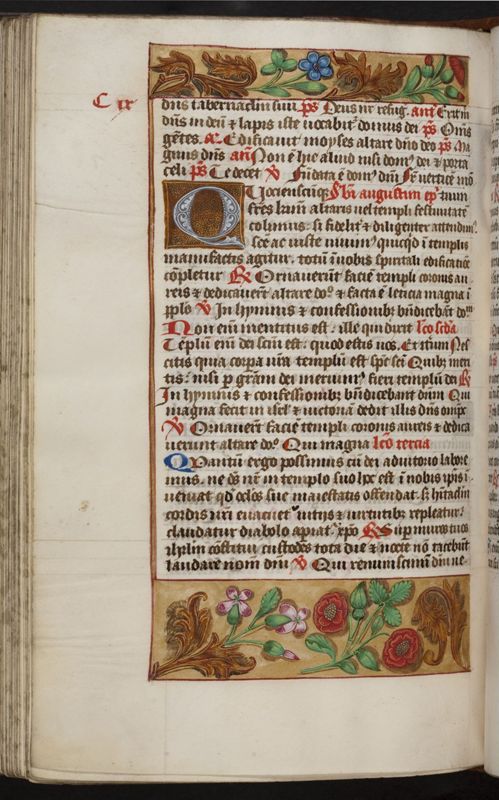 C ix
dñs tabernaclm suũ p̄s Deus nr̃ refug. añt Erit m̃
dñs in deũ & lapis iste vocabit᷑ domus dei p̄s Om̃s
gẽtes. Edificavit moyses altare dño deo p̄s Ma
gnus dñs añ Non ẽ hic aliud nisi dom᷒ dei & porta
celi p̄s Te decet ℣ Fũdata ẽ dom᷒ dñi ℟ vertice mõ
Quocienscũq̃ Sbi augustini ep̃i
fr̃es kmi altaris vel templi festivitatẽ
colimus. si fidelit᷑ & diligenter attendim᷒
manufactis agitur. totũ ĩ vobis spũali edificatiõe
cõpletur ℟ Ornaverũt faciẽ templi coronis au
reis & dedicaverũt altare dõ. & facta ẽ leticia magna ĩ
pplo ℣ In hymnis & confessionibꝫ bñdicebãt dom̃
Non eĩm mentitus est. ille qui dixit lc̃o sc̃da
Templũ eĩm dei sc̃m est. quod estis vos. Et itm̃ Nes
citis quia corpa vr̃a templũ est sp̃c sc̃i Quibꝫ meri
tis. nisi p gr̃am dei meruim᷒ fieri templũ dei ℟
In hymnis & confessionibꝫ bñdicebant dñm Qui
magna fecit in isrl̃ & victoriã dedit illis dñs om̃ps
℣ Ornaverũt faciẽ templi coronis aureis & dedica
verunt altare dõ. Qui magna lc̃o tercia
Quantũ ergo possimus cũ dei adiutorio labore
mus. ne dñs nr̃ in templo suo hoc est ĩ nobis ipis ĩ
veniat qd̃ oc̃los sue maiestatis offendat. sꝫ hĩtaclm
cordis nr̃i evacuet᷑ vitijs & virtutibꝫ repleatur.
claudatur diabolo apiat᷑ xp̃o ℟ Sup muros tuos
ihrlm cõstitui custodes tota die & nocte nõ tacebũt
laudare nom̃ dñi ℣ Qui reminiscimĩ dñi ne